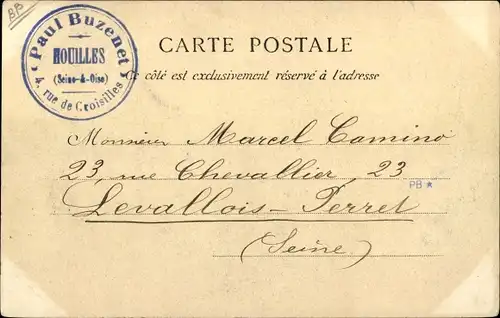 BB
Paul Buzenet
HOUILLES
(Seine-&-Oise)
4, rue de Croisilles
CARTE POSTALE
Ce côté est exclusivement réservé à l'adresse
Monsieur Marcel Camino
23, rue Chevallier, 23
PB *
Levallois-Perret
(Seine)